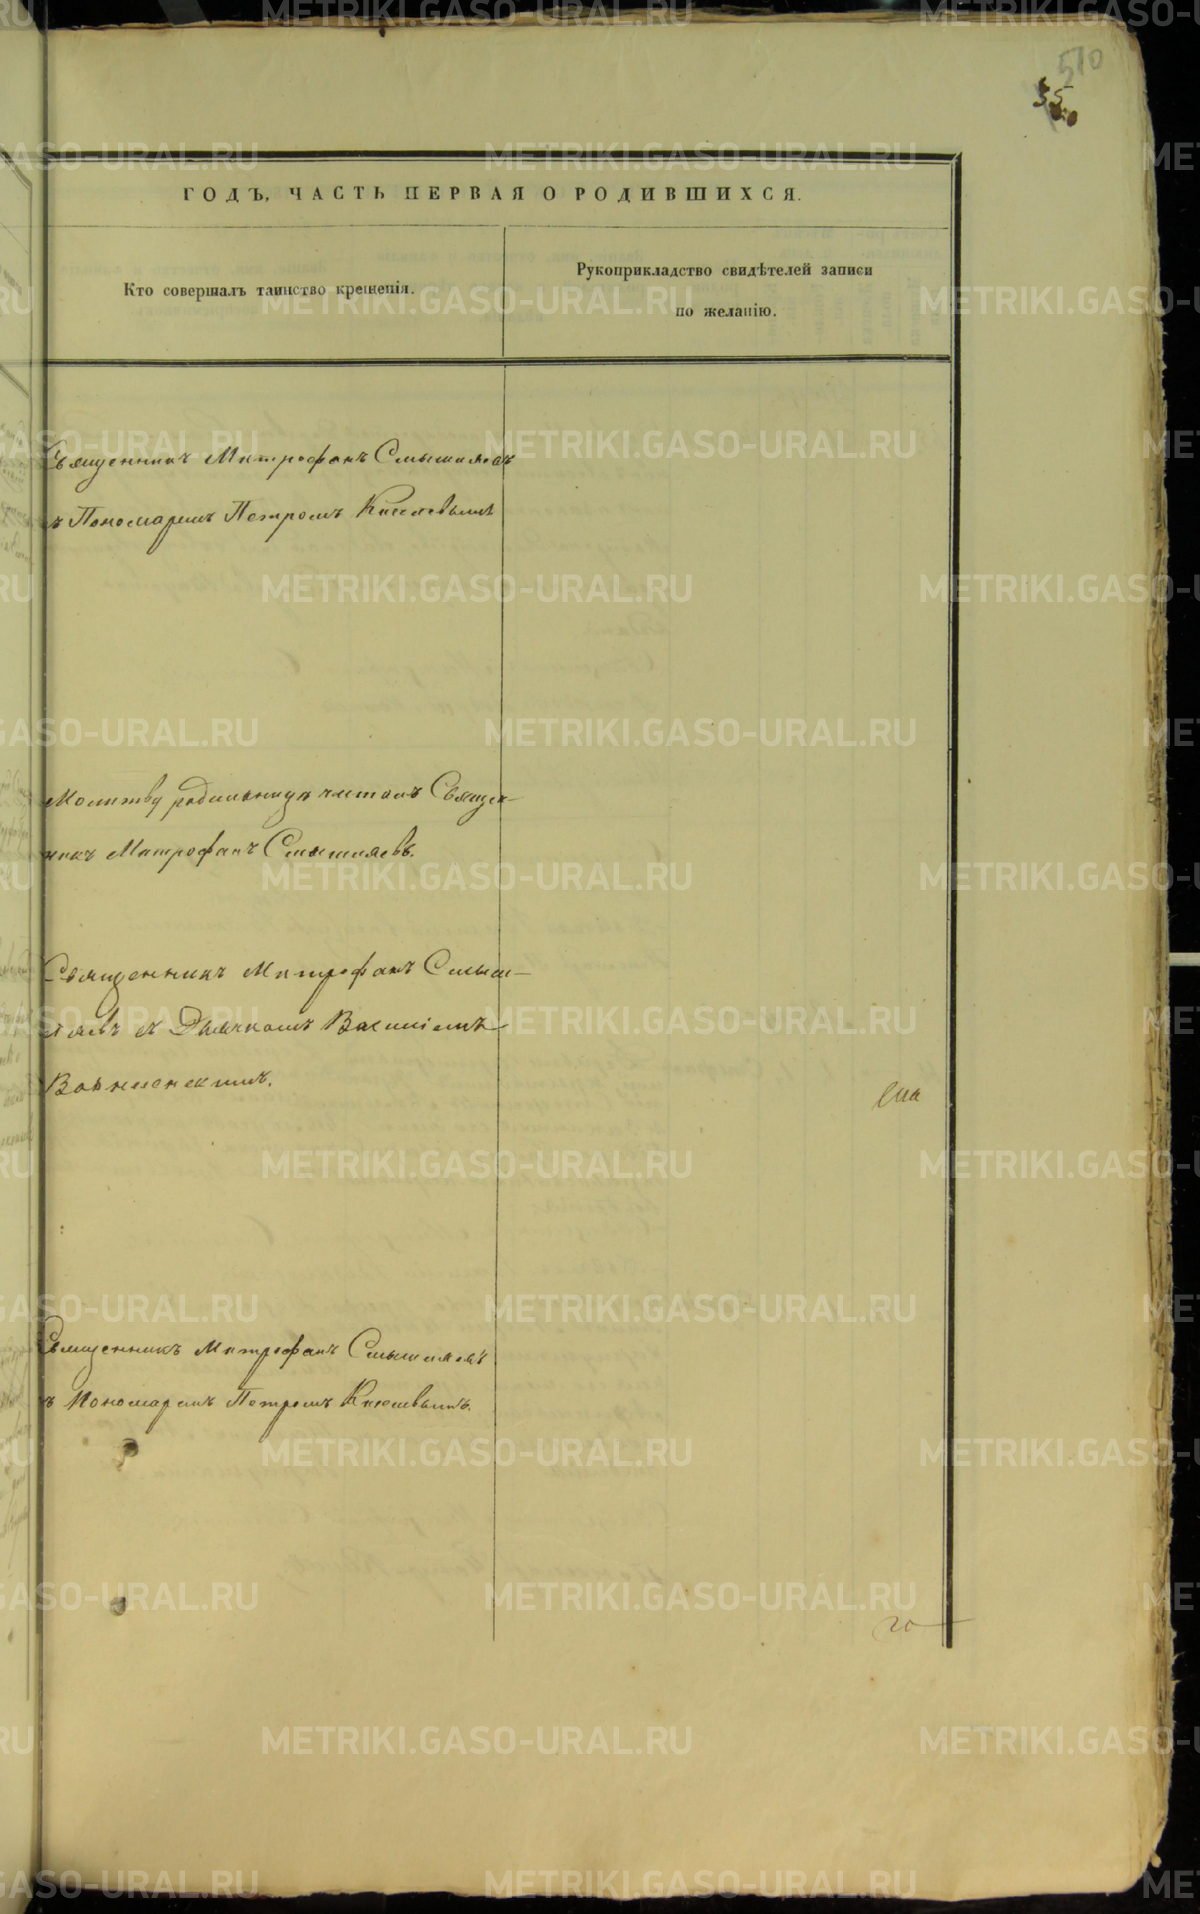 510
ГОДЪ, ЧАСТЬ ПЕРВАЯ О РОДИВШИХСЯ.
Кто совершалъ таинство крещенія.
Рукоприкладство свидѣтелей записи
по желанію.
Священникъ Митрофанъ Смышляевъ
съ Пономаремъ Петромъ Киселевымъ
Молитву родильницѣ читалъ Священ-
никъ Митрофанъ Смышляевъ.
Священникъ Митрофанъ Смыш-
ляевъ съ Дьячкомъ Василіемъ
Вознесенскимъ.
Священникъ Митрофанъ Смышляевъ
съ Пономаремъ Петромъ Киселевымъ.
METRIKI.GASO-URAL.RU